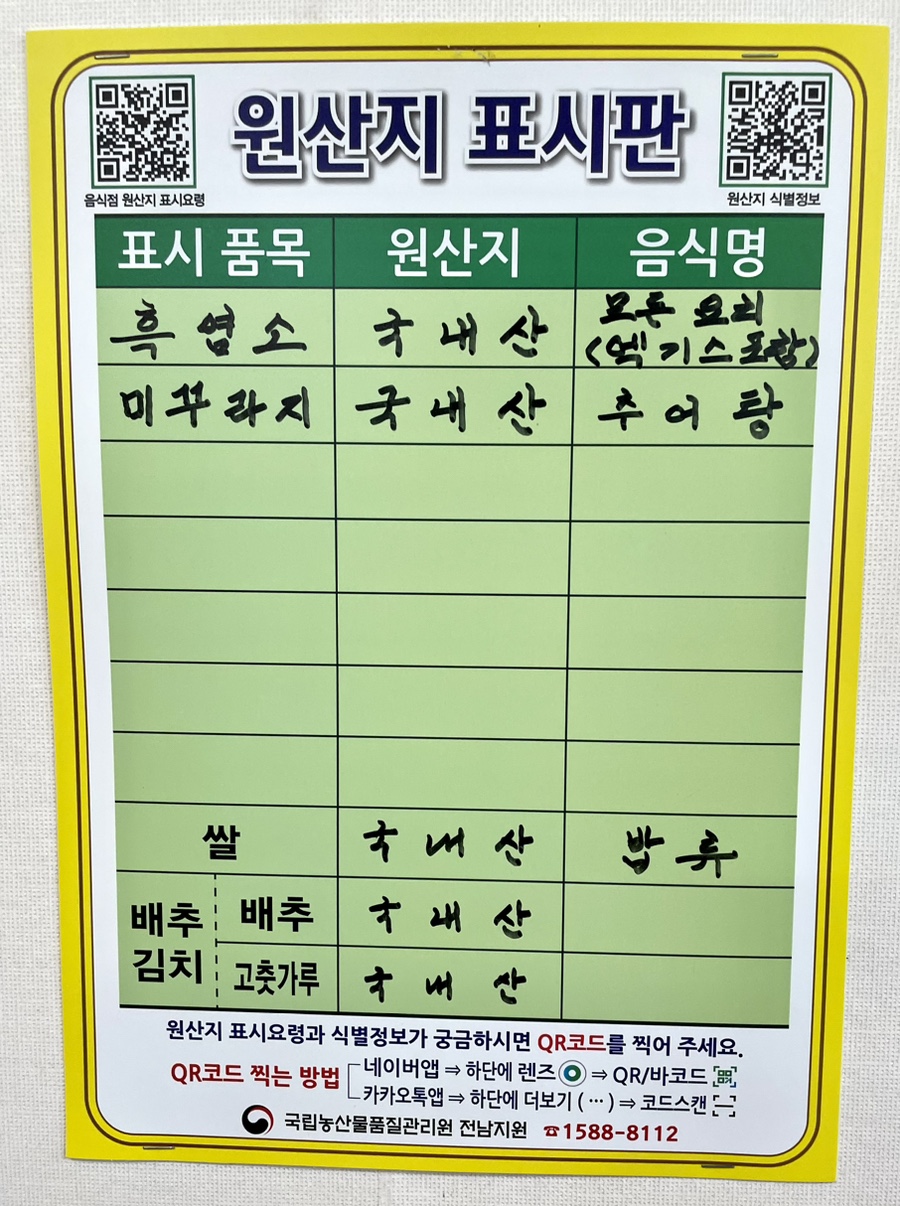 원산지 표시판
음식점 원산지 표시요령
원산지 식별정보
표시 품목 원산지 음식명
흑염소 국내산 모든 요리
(엑기스포함)
미꾸라지 국내산 추어탕
쌀 국내산 밥류
배추김치 배추 국내산
고춧가루 국내산
원산지 표시요령과 식별정보가 궁금하시면 QR코드를 찍어 주세요.
QR코드 찍는 방법 네이버앱 ⇒ 하단에 렌즈 ⇒ QR/바코드
카카오톡앱 ⇒ 하단에 더보기 ( ··· ) ⇒ 코드스캔
국립농산물품질관리원 전남지원 ☎1588-8112